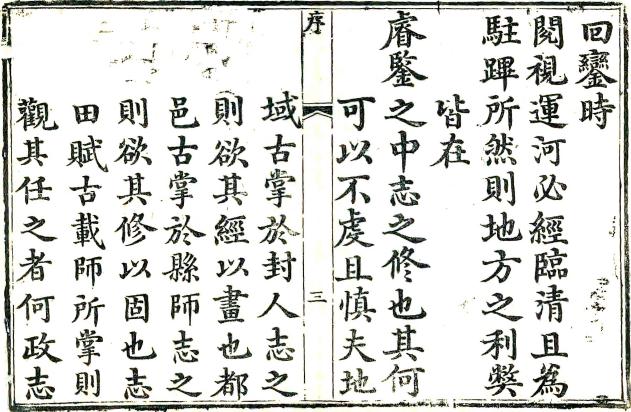 回鑾時
閱視運河必經臨清且為
駐蹕所然則地方之利獘
皆在
睿鑒之中志之修也其何
可以不虔且慎夫地
序
三
域古掌於封人志之
則欲其經以畫也都
邑古掌於縣師志之
則欲其修以固也志
田賦古載師所掌則
觀其任之者何政志